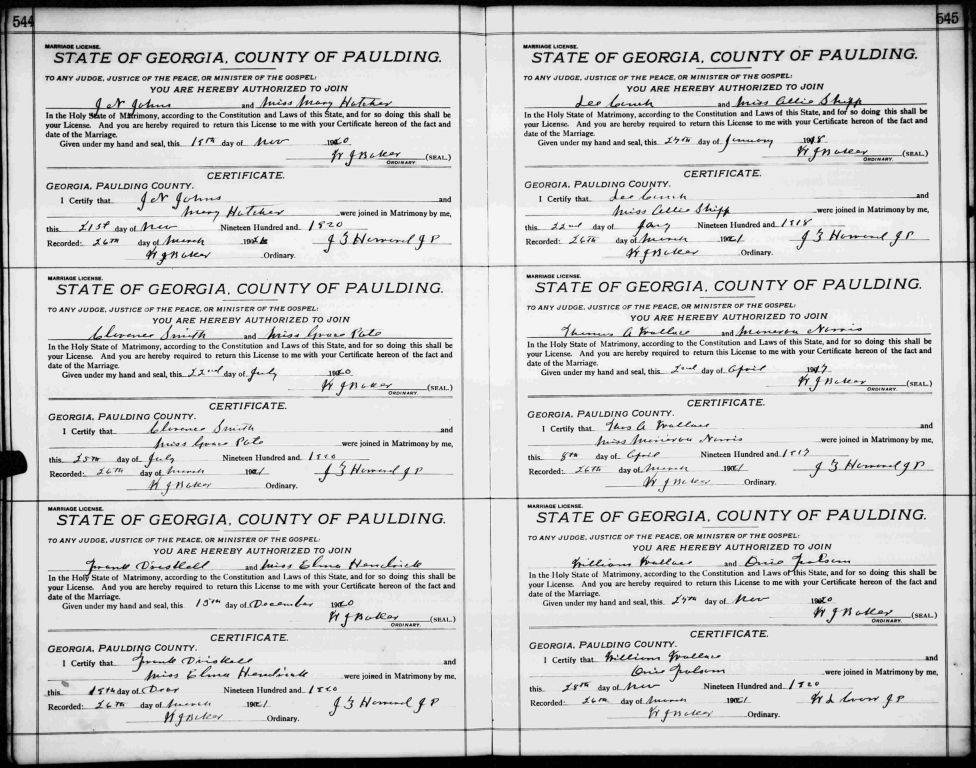 544
MARRIAGE LICENSE.
STATE OF GEORGIA, COUNTY OF PAULDING.
TO ANY JUDGE, JUSTICE OF THE PEACE, OR MINISTER OF THE GOSPEL:
YOU ARE HEREBY AUTHORIZED TO JOIN
J N Johns and Miss Mary Hatcher
In the Holy State of Matrimony, according to the Constitution and Laws of this State, and for so doing this shall be
your License. And you are hereby required to return this License to me with your Certificate hereon of the fact and
date of the Marriage.
Given under my hand and seal, this 18th day of Nov 1920
W J Baker (SEAL.)
ORDINARY.
CERTIFICATE.
GEORGIA, PAULDING COUNTY.
I Certify that J N Johns and
Mary Hatcher were joined in Matrimony by me,
this 21st day of Nov Nineteen Hundred and 1920
Recorded: 26th day of March 1921 J Howard J P
W J Baker Ordinary.
MARRIAGE LICENSE.
STATE OF GEORGIA, COUNTY OF PAULDING.
TO ANY JUDGE, JUSTICE OF THE PEACE, OR MINISTER OF THE GOSPEL:
YOU ARE HEREBY AUTHORIZED TO JOIN
Clarence Smith and Miss Grace Pate
In the Holy State of Matrimony, according to the Constitution and Laws of this State, and for so doing this shall be
your License. And you are hereby required to return this License to me with your Certificate hereon of the fact and
date of the Marriage.
Given under my hand and seal, this 22nd day of July 1920
W J Baker (SEAL.)
ORDINARY.
CERTIFICATE.
GEORGIA, PAULDING COUNTY.
I Certify that Clarence Smith and
Miss Grace Pate were joined in Matrimony by me,
this 25th day of July Nineteen Hundred and 1920
Recorded: 26th day of March 1921 J Howard J P
W J Baker Ordinary.
MARRIAGE LICENSE.
STATE OF GEORGIA, COUNTY OF PAULDING.
TO ANY JUDGE, JUSTICE OF THE PEACE, OR MINISTER OF THE GOSPEL:
YOU ARE HEREBY AUTHORIZED TO JOIN
Frank Driskell and Miss Elma Hendrick
In the Holy State of Matrimony, according to the Constitution and Laws of this State, and for so doing this shall be
your License. And you are hereby required to return this License to me with your Certificate hereon of the fact and
date of the Marriage.
Given under my hand and seal, this 15th day of December 1920
W J Baker (SEAL.)
ORDINARY.
CERTIFICATE.
GEORGIA, PAULDING COUNTY.
I Certify that Frank Driskell and
Miss Elma Hendrick were joined in Matrimony by me,
this day of Decr Nineteen Hundred and 1920
Recorded: 26th day of March 1921 J Howard J P
W J Baker Ordinary.
545
MARRIAGE LICENSE.
STATE OF GEORGIA, COUNTY OF PAULDING.
TO ANY JUDGE, JUSTICE OF THE PEACE, OR MINISTER OF THE GOSPEL:
YOU ARE HEREBY AUTHORIZED TO JOIN
Lee and Miss Allie Shipp
In the Holy State of Matrimony, according to the Constitution and Laws of this State, and for so doing this shall be
your License. And you are hereby required to return this License to me with your Certificate hereon of the fact and
date of the Marriage.
Given under my hand and seal, this day of January 1918
W J Baker (SEAL.)
ORDINARY.
CERTIFICATE.
GEORGIA, PAULDING COUNTY.
I Certify that Lee and
Miss Allie Shipp were joined in Matrimony by me,
this 22nd day of Jany Nineteen Hundred and 1918
Recorded: 26th day of March 1921 J Howard J P
W J Baker Ordinary.
MARRIAGE LICENSE.
STATE OF GEORGIA, COUNTY OF PAULDING.
TO ANY JUDGE, JUSTICE OF THE PEACE, OR MINISTER OF THE GOSPEL:
YOU ARE HEREBY AUTHORIZED TO JOIN
Thomas A Wallace and Minerva Norris
In the Holy State of Matrimony, according to the Constitution and Laws of this State, and for so doing this shall be
your License. And you are hereby required to return this License to me with your Certificate hereon of the fact and
date of the Marriage.
Given under my hand and seal, this 2nd day of April 1917
W J Baker (SEAL.)
ORDINARY.
CERTIFICATE.
GEORGIA, PAULDING COUNTY.
I Certify that Thos A Wallace and
Miss Minerva Norris were joined in Matrimony by me,
this 8th day of April Nineteen Hundred and 1917
Recorded: 26th day of March 1921 J Howard J P
W J Baker Ordinary.
MARRIAGE LICENSE.
STATE OF GEORGIA, COUNTY OF PAULDING.
TO ANY JUDGE, JUSTICE OF THE PEACE, OR MINISTER OF THE GOSPEL:
YOU ARE HEREBY AUTHORIZED TO JOIN
William Wallace and Folsom
In the Holy State of Matrimony, according to the Constitution and Laws of this State, and for so doing this shall be
your License. And you are hereby required to return this License to me with your Certificate hereon of the fact and
date of the Marriage.
Given under my hand and seal, this 27th day of Nov 1920
W J Baker (SEAL.)
ORDINARY.
CERTIFICATE.
GEORGIA, PAULDING COUNTY.
I Certify that William Wallace and
Folsom were joined in Matrimony by me,
this 28th day of Nov Nineteen Hundred and 1920
Recorded: 26th day of March 1921 W L J P
W J Baker Ordinary.